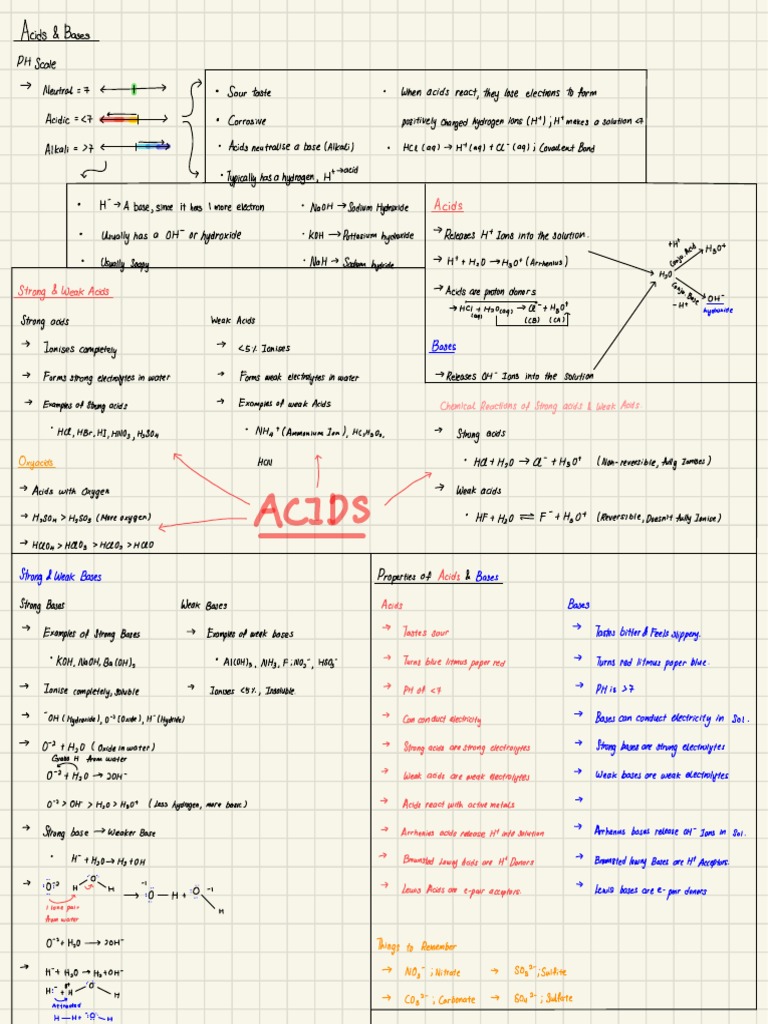 Acids & Bases
PH Scale
→ Neutral = 7
Acidic = <7
Alkali = >7
• Sour taste
• Corrosive
• Acids neutralise a base (Alkali)
• Typically has a hydrogen, H⁺→acid
• When acids react, they lose electrons to form
positively charged hydrogen ions (H⁺); H⁺ makes a solution <7
• HCl (aq) → H⁺(aq) + Cl⁻(aq); Covalent Bond
• H⁻ → A base, since it has 1 more electron
• Usually has a OH⁻ or hydroxide
• Usually Soapy
• NaOH → Sodium Hydroxide
• KOH → Pottasium hydroxide
• NaH → Sodium hydride
Acids
→ Releases H⁺ Ions into the solution.
→ H⁺ + H₂O → H₃O⁺ (Arrhenius)
→ Acids are proton donors
→ HCl + H₂O(aq) → Cl⁻ + H₃O⁺
(aq) (CB) (CA)
Bases
→ Releases OH⁻ Ions into the solution
+H⁺
Conju. Acid
H₃O⁺
H₂O
Conju. Base
-H⁺
OH⁻
hydroxide
Strong & Weak Acids
Strong acids
→ Ionises completely
→ Forms strong electrolytes in water
→ Examples of Strong acids
• HCl, HBr, HI, HNO₃, H₂SO₄
Weak Acids
→ <5% Ionises
→ Forms weak electrolytes in water
→ Examples of weak Acids
• NH₄⁺ (Ammonium Ion), HC₂H₃O₂,
HCN
Oxyacids
→ Acids with Oxygen
→ H₂SO₄ > H₂SO₃ (More oxygen)
→ HClO₄ > HClO₃ > HClO₂ > HClO
ACIDS
Chemical Reactions of Strong acids & Weak Acids.
→ Strong acids
• HCl + H₂O → Cl⁻ + H₃O⁺ (Non-reversible, fully Ionises)
→ Weak acids
• HF + H₂O ⇌ F⁻ + H₃O⁺ (Reversible, Doesn't fully Ionise)
Strong & Weak Bases
Strong Bases
→ Examples of Strong Bases
• KOH, NaOH, Ba(OH)₂
→ Ionise completely, soluble
→ ⁻OH (Hydroxide), O⁻² (Oxide), H⁻ (Hydride)
→ O⁻² + H₂O (Oxide in water)
Grabs H from water
O⁻² + H₂O → 2OH⁻
O⁻² > OH⁻ > H₂O > H₃O⁺ (Less hydrogen, more basic)
→ Strong base → Weaker Base
• H⁻ + H₂O → H₂ + OH
Weak Bases
→ Examples of weak bases
• Al(OH)₃, NH₃, F⁻; NO₂⁻, HSO₄⁻
→ Ionises <5%, Insoluble.
→ O⁻² H O H → ⁻¹O — H + O⁻¹ H
1 lone pair
from water
O⁻² + H₂O → 2OH⁻
→ H⁻ + H₂O → H₂ + OH⁻
H:⁻ + H O H
Attracted
H — H + O H
Properties of Acids & Bases
Acids
→ Tastes sour
→ Turns blue litmus paper red
→ PH of <7
→ Can conduct electricity
→ Strong acids are strong electrolytes
→ Weak acids are weak electrolytes
→ Acids react with active metals
→ Arrhenius acids release H⁺ into solution
→ Bronsted Lowry acids are H⁺ Donors
→ Lewis Acids are e-pair acceptors.
Bases
→ Tastes bitter & Feels slippery.
→ Turns red litmus paper blue.
→ PH is >7
→ Bases can conduct electricity in Sol.
→ Strong bases are strong electrolytes
→ Weak bases are weak electrolytes
→
→ Arrhenius bases release OH⁻ Ions in Sol.
→ Bronsted lowry Bases are H⁺ Acceptors.
→ Lewis bases are e- pair donors
Things to Remember
→ NO₃⁻; Nitrate → SO₃²⁻; Sulfite
→ CO₃²⁻; Carbonate → SO₄²⁻; Sulfate